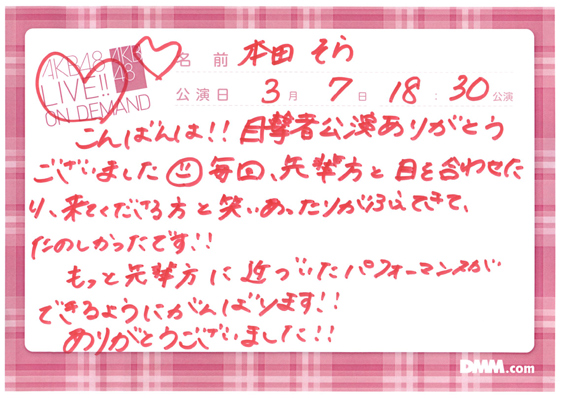 AKB48
LIVE!!
ON DEMAND
AKB
48
名前 本田 そら
公演日 3月 7日 18:30公演
こんばんは!! 目撃者公演ありがとう
ございました☺毎回、先輩方と目を合わせた
り、来てくださる方と笑いあったりが
できて、
たのしかったです!!
もっと先輩方に近づいたパフォーマンスが
できるようにがんばります!!
ありがとうございました!!
DMM.com